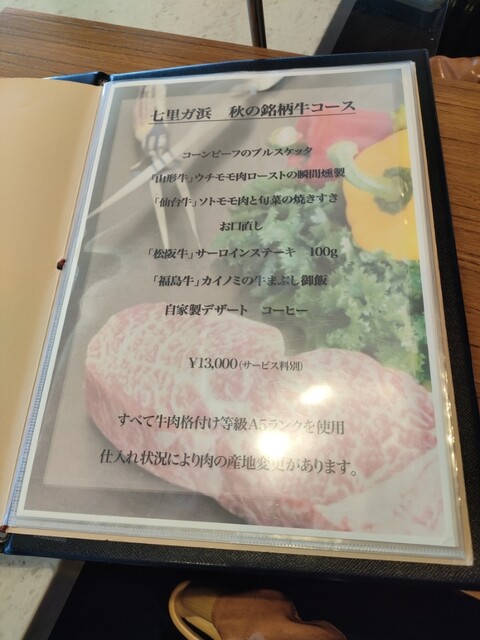 七里ガ浜　秋の銘柄牛コース
コーンビーフのブルスケッタ
「山形牛」ウチモモ肉ローストの瞬間燻製
「仙台牛」ソトモモ肉と旬菜の焼きすき
お口直し
「松阪牛」サーロインステーキ　100g
「福島牛」カイノミの牛まぶし御飯
自家製デザート　コーヒー
¥13,000（サービス料別）
すべて牛肉格付け等級A5ランクを使用
仕入れ状況により肉の産地変更があります。